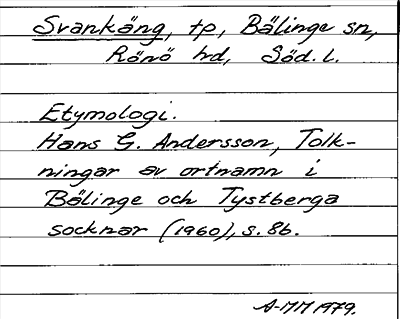 Svankäng, tp, Bälinge sn,
Rönö hd, Söd. l.
Etymologi.
Hans G. Andersson, Tolk-
ningar av ortnamn i
Bälinge och Tystberga
socknar (1960), s. 86.
A-MM 1979.